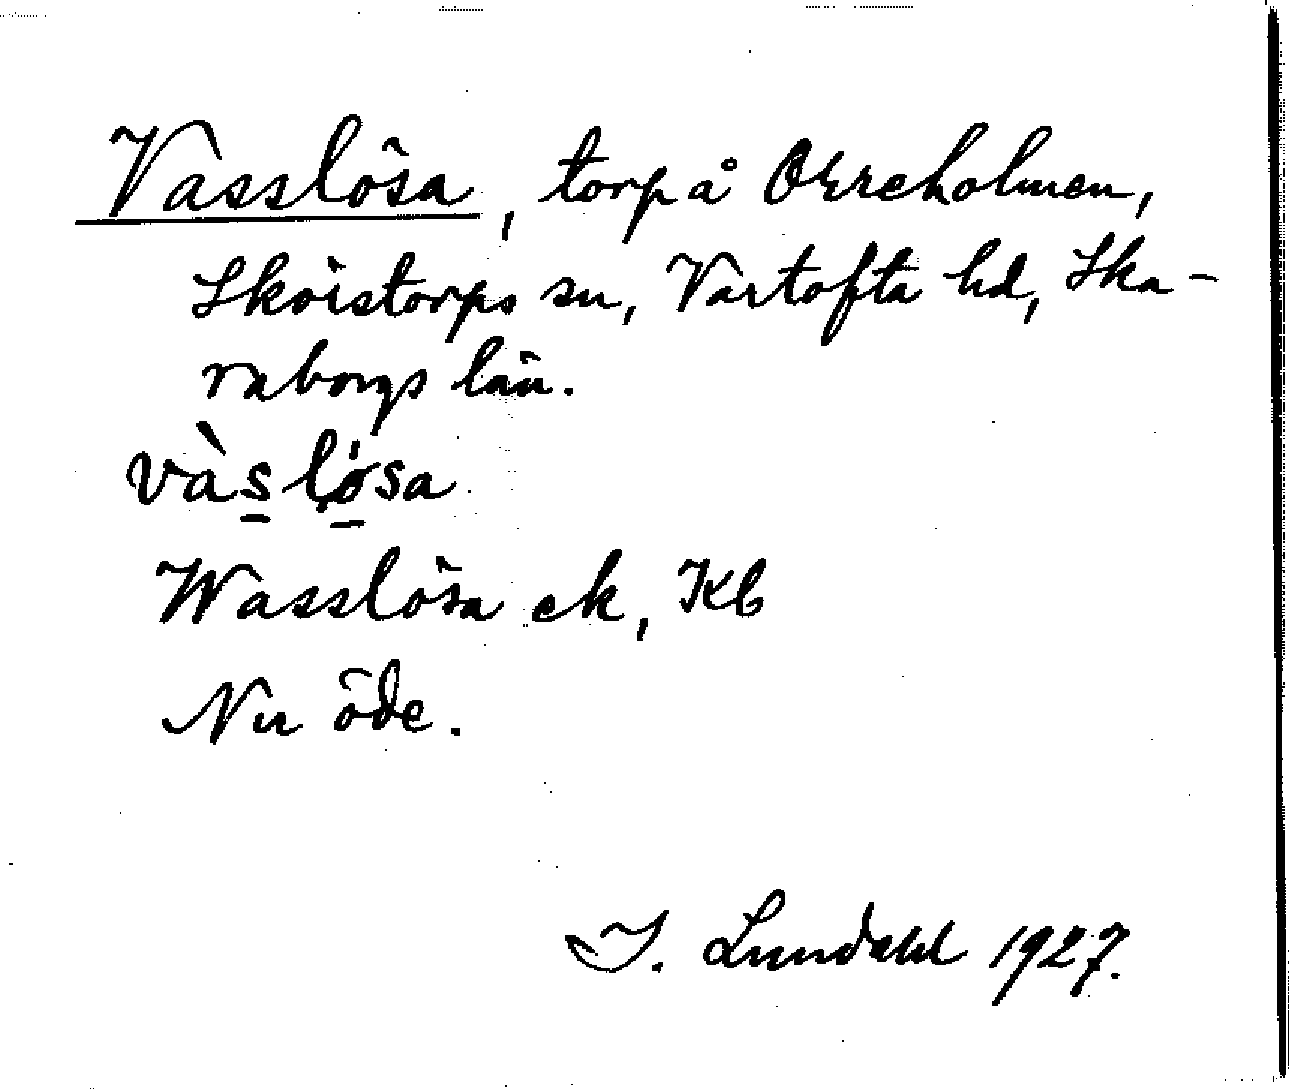 Vasslösa, torp å Orreholmen,
Skörstorps sn, Vartofta hd, Ska-
raborgs län.
vàslø̀sa
Wasslösa ek, Kb
Nu öde.
I. Lundahl 1927.